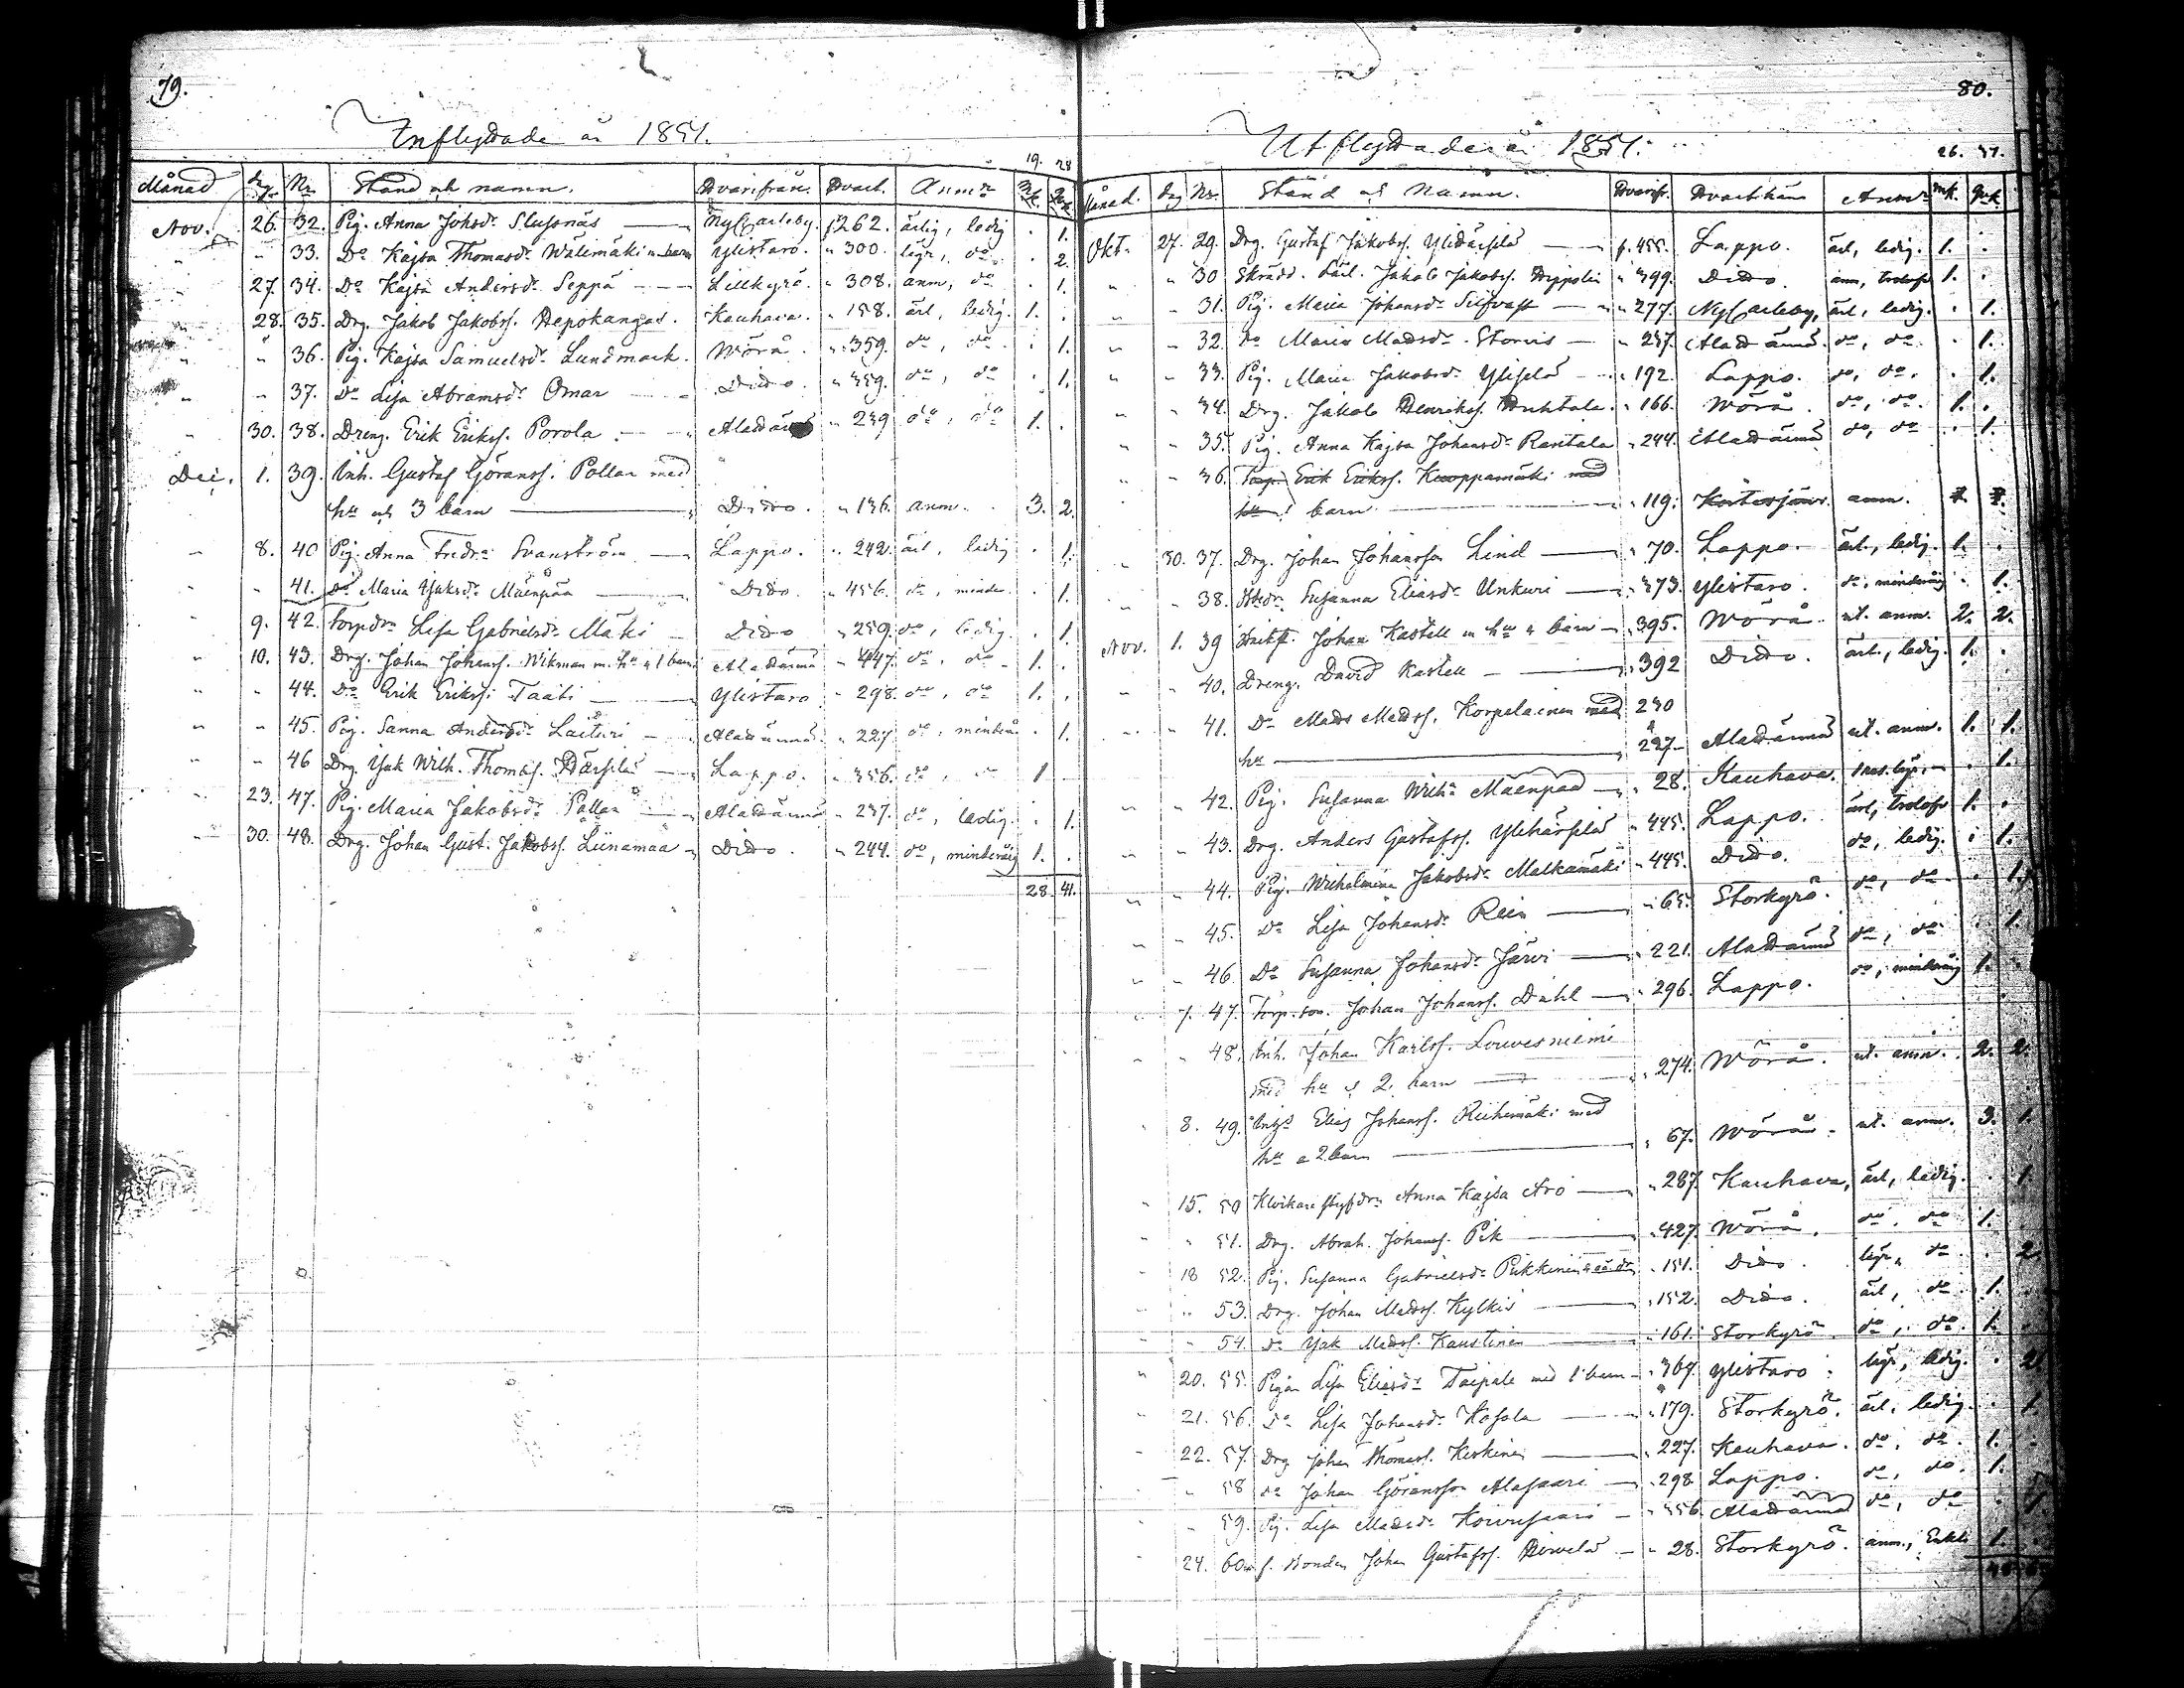 79.
Inflyttade år 1851.
19. 28
Månad dag. Nr. Stånd och namn. Hvarifrån. Hvart. Anmn mk. qvk.
Nov. 26. 32. Pig. Anna Johsdr. Slussnäs — Ny Carleby. f 262. ärlig, ledig . 1.
" " 33. Do Kajsa Thomasdr. Wälimäki m. barn Ylistaro. " 300. lägr., do . 2.
" 27. 34. Do Kajsa Andersdr. Seppä — Lillkyrö. " 308. anm, do . 1.
" 28. 35. Drg. Jakob Jakobss. Hepokangas. Kauhava. " 158. ärl, ledig. 1. .
" " 36. Pig. Kajsa Samuelsdr. Lundmark. Wörå. " 359. do, do . 1.
" " 37. Do Lisa Abramsdr. Omar — Dido. " 359. do, do . 1.
" 30. 38. Dreng. Erik Erikss. Porola. — Alahärmä " 239 do, do 1. .
Dec. 1. 39. Inh. Gustaf Göranss. Pollar med
hu och 3 barn — Dido. " 136. anm. 3. 2.
" 8. 40 Pig. Anna Fredr. Svanström — Lappo. " 242. ärl, ledig . 1.
" " 41. do Maria Isaksdr. Mäenpää — Dido. " 456. do, minder. . 1.
" 9. 42. Torpdr. Lisa Gabrielsdr. Mäki — Dido " 259. do, ledig. . 1.
" 10. 43. Drg. Johan Johanss. Wiksman m. hu o 1 barn Alahärmä " 447. do, do 1. .
" " 44. Do Erik Erikss. Taati — Ylistaro " 298. do, do 1. .
" " 45. Pig. Sanna Andersdr. Laituri — Alahärmä. " 227 do, minderå . 1.
" " 46 Drg. Isak Wilh. Thomass. Härsilä — Lappo. " 356. do, do 1 .
" 23. 47. Pig. Maria Jakobsdr. Pallar — Alahärmä " 237. do, ledig. . 1.
" 30. 48. Drg. Johan Gust. Jakobss. Liinamaa — Dido. " 244. do, minderåig 1. .
28. 41.
80.
Utflyttade år 1851.
26. 37.
Månad. Dag Nr. Stånd och Namn. Hvarifr. Hvarthän Anmn mk. qvk.
Okt. 27. 29. Drg. Gustaf Jakobss. Ylihärsilä — f. 455. Lappo. ärl, ledig. 1. .
" " 30 Skrädd. Lärl. Jakob Jakobss. Heppoli " 399. Dido. anm, trolofv 1. .
" " 31. Pig. Maria Johansdr. Silfvast — " 277. Ny Carleby, ärl, ledig. . 1.
" " 32. Do Maria Madsdr. Storvis — " 237. Alahärmä. do, do. . 1.
" " 33. Pig. Maria Jakobsdr. Ylisilä — " 192. Lappo. do, do. . 1.
" " 34. Drg. Jakob Henrikss. Huhtala. " 166. Wörå. do, do. 1. .
" " 35. Pig. Anna Kajsa Johansdr. Rantala " 244. Alahärmä do, do . 1.
" " 36. Torp. Erik Erikss. Kuoppamäki med
hu barn — " 119. Kortesjärvi. anm.
" 30. 37. Drg. Johan Johansson Lind — " 70. Lappo. ärl., ledig. 1. .
" " 38. Susanna Eliasdr. Unkuri — " 373. Ylistaro. do, minderåig . 1.
Nov. 1. 39 Johan Kastell m hu o barn — " 395. Wörå. ut. anm. 2. 2.
" " 40. Dreng. David Kastell — " 392 Dido. ärl., ledig. 1. .
" " 41. Do Mads Madss. Korpelainen med 230
hu — 227 — Alahärmä ut. anm. 1. 1.
" " 42. Pig. Susanna Wilh. Mäenpää — " 28. Kauhava. . 1.
" " 43. Drg. Anders Gustafss. Ylihärsilä " 445. Lappo. ärl, trolofv 1. .
" " 44. Pig. Wilhelmina Jakobsdr. Malkamäki " 445. Dido. do, ledig. . 1.
" " 45. Do Lisa Johansdr. Rein — " 65. Storkyrö. do, do . 1.
" " 46 Do Susanna Johansdr. Järvi — " 221. Alahärmä do, do . 1.
" 7. 47. Torp. son. Johan Johanss. Dahl — " 296. Lappo. do, minderåig 1. .
" " 48. Inh. Johan Karlss. Louvesniemi
med hu o 2 barn — " 274. Wörå. ut. anm. 2. 2.
" 8. 49. Elias Johanss. Riihimäki med
hu o 2 barn — " 67. Wörå. ut. anm. 3. 1.
" 15. 50 Klockare styfdr. Anna Kajsa Aro — " 287. Kauhava, ärl, ledig. . 1.
" " 51. Drg. Abrah. Johanss. Pik — " 427. Wörå. do. do 1. .
" 18 52. Pig. Susanna Gabrielsdr. Pukkinen " 151. Dido. lägr, do . 2
" " 53. Drg. Johan Madss. Kylkis — " 152. Dido. ärl, do 1. .
" " 54. Do Isak Madss. Kaustinen — " 161. Storkyrö. do, do 1. .
" 20. 55. Pigan Lisa Eliasdr. Taipale med 1 barn — " 367. Ylistaro. lägr, ledig. . 2
" 21. 56. Do Lisa Johansdr. Kosola — " 179. Storkyrö. ärl, ledig. . 1.
" 22. 57. Drg Johan Thomass. Keskinen — " 227. Kauhava. do, do. 1. .
" " 58 do Johan Göransson Alasaari — " 298 Lappo. do, do. 1. .
" " 59. Pig. Lisa Madsdr. Koivusaari — " 356. Alahärmä do, do . 1
" 24. 60. f. Bonden Johan Gustafss. Hirvelä — " 28. Storkyrö. anm., Enkl. 1. .